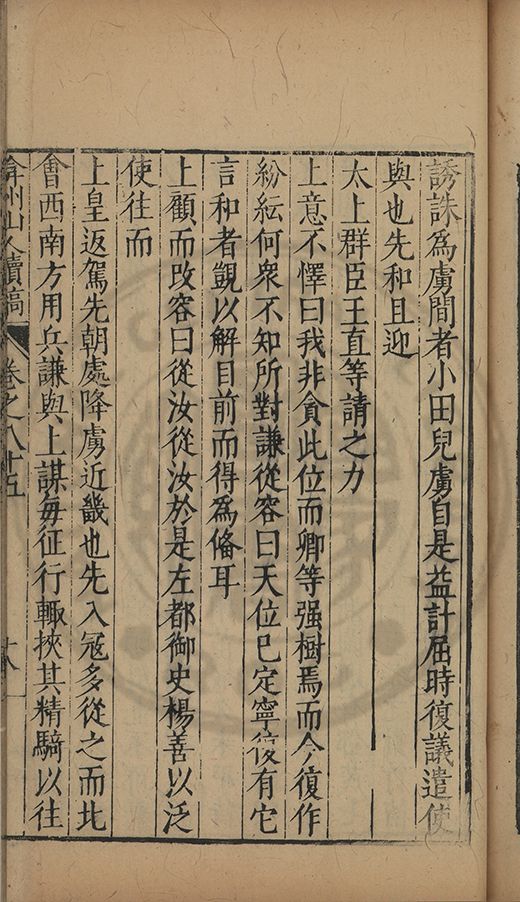 誘誅為虜間者小田兒虜自是益計屈時復議遣使
與也先和且迎
太上群臣王直等請之力
上意不懌曰我非貪此位而卿等强樹焉而今復作
紛紜何衆不知所對謙從容曰天位已定寧復有它
言和者覬以解目前而得為俻耳
上顧而改容曰從汝從汝於是左都御史楊善以泛
使往而
上皇返駕先朝處降虜近畿也先入冦多從之而北
㑹西南方用兵謙與上謀毎征行輙挾其精騎以往
弇州山人續稿 卷之八十五 十八